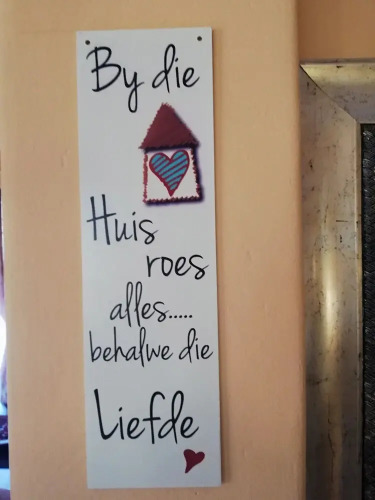 By die
Huis
roes
alles.....
behalwe die
Liefde